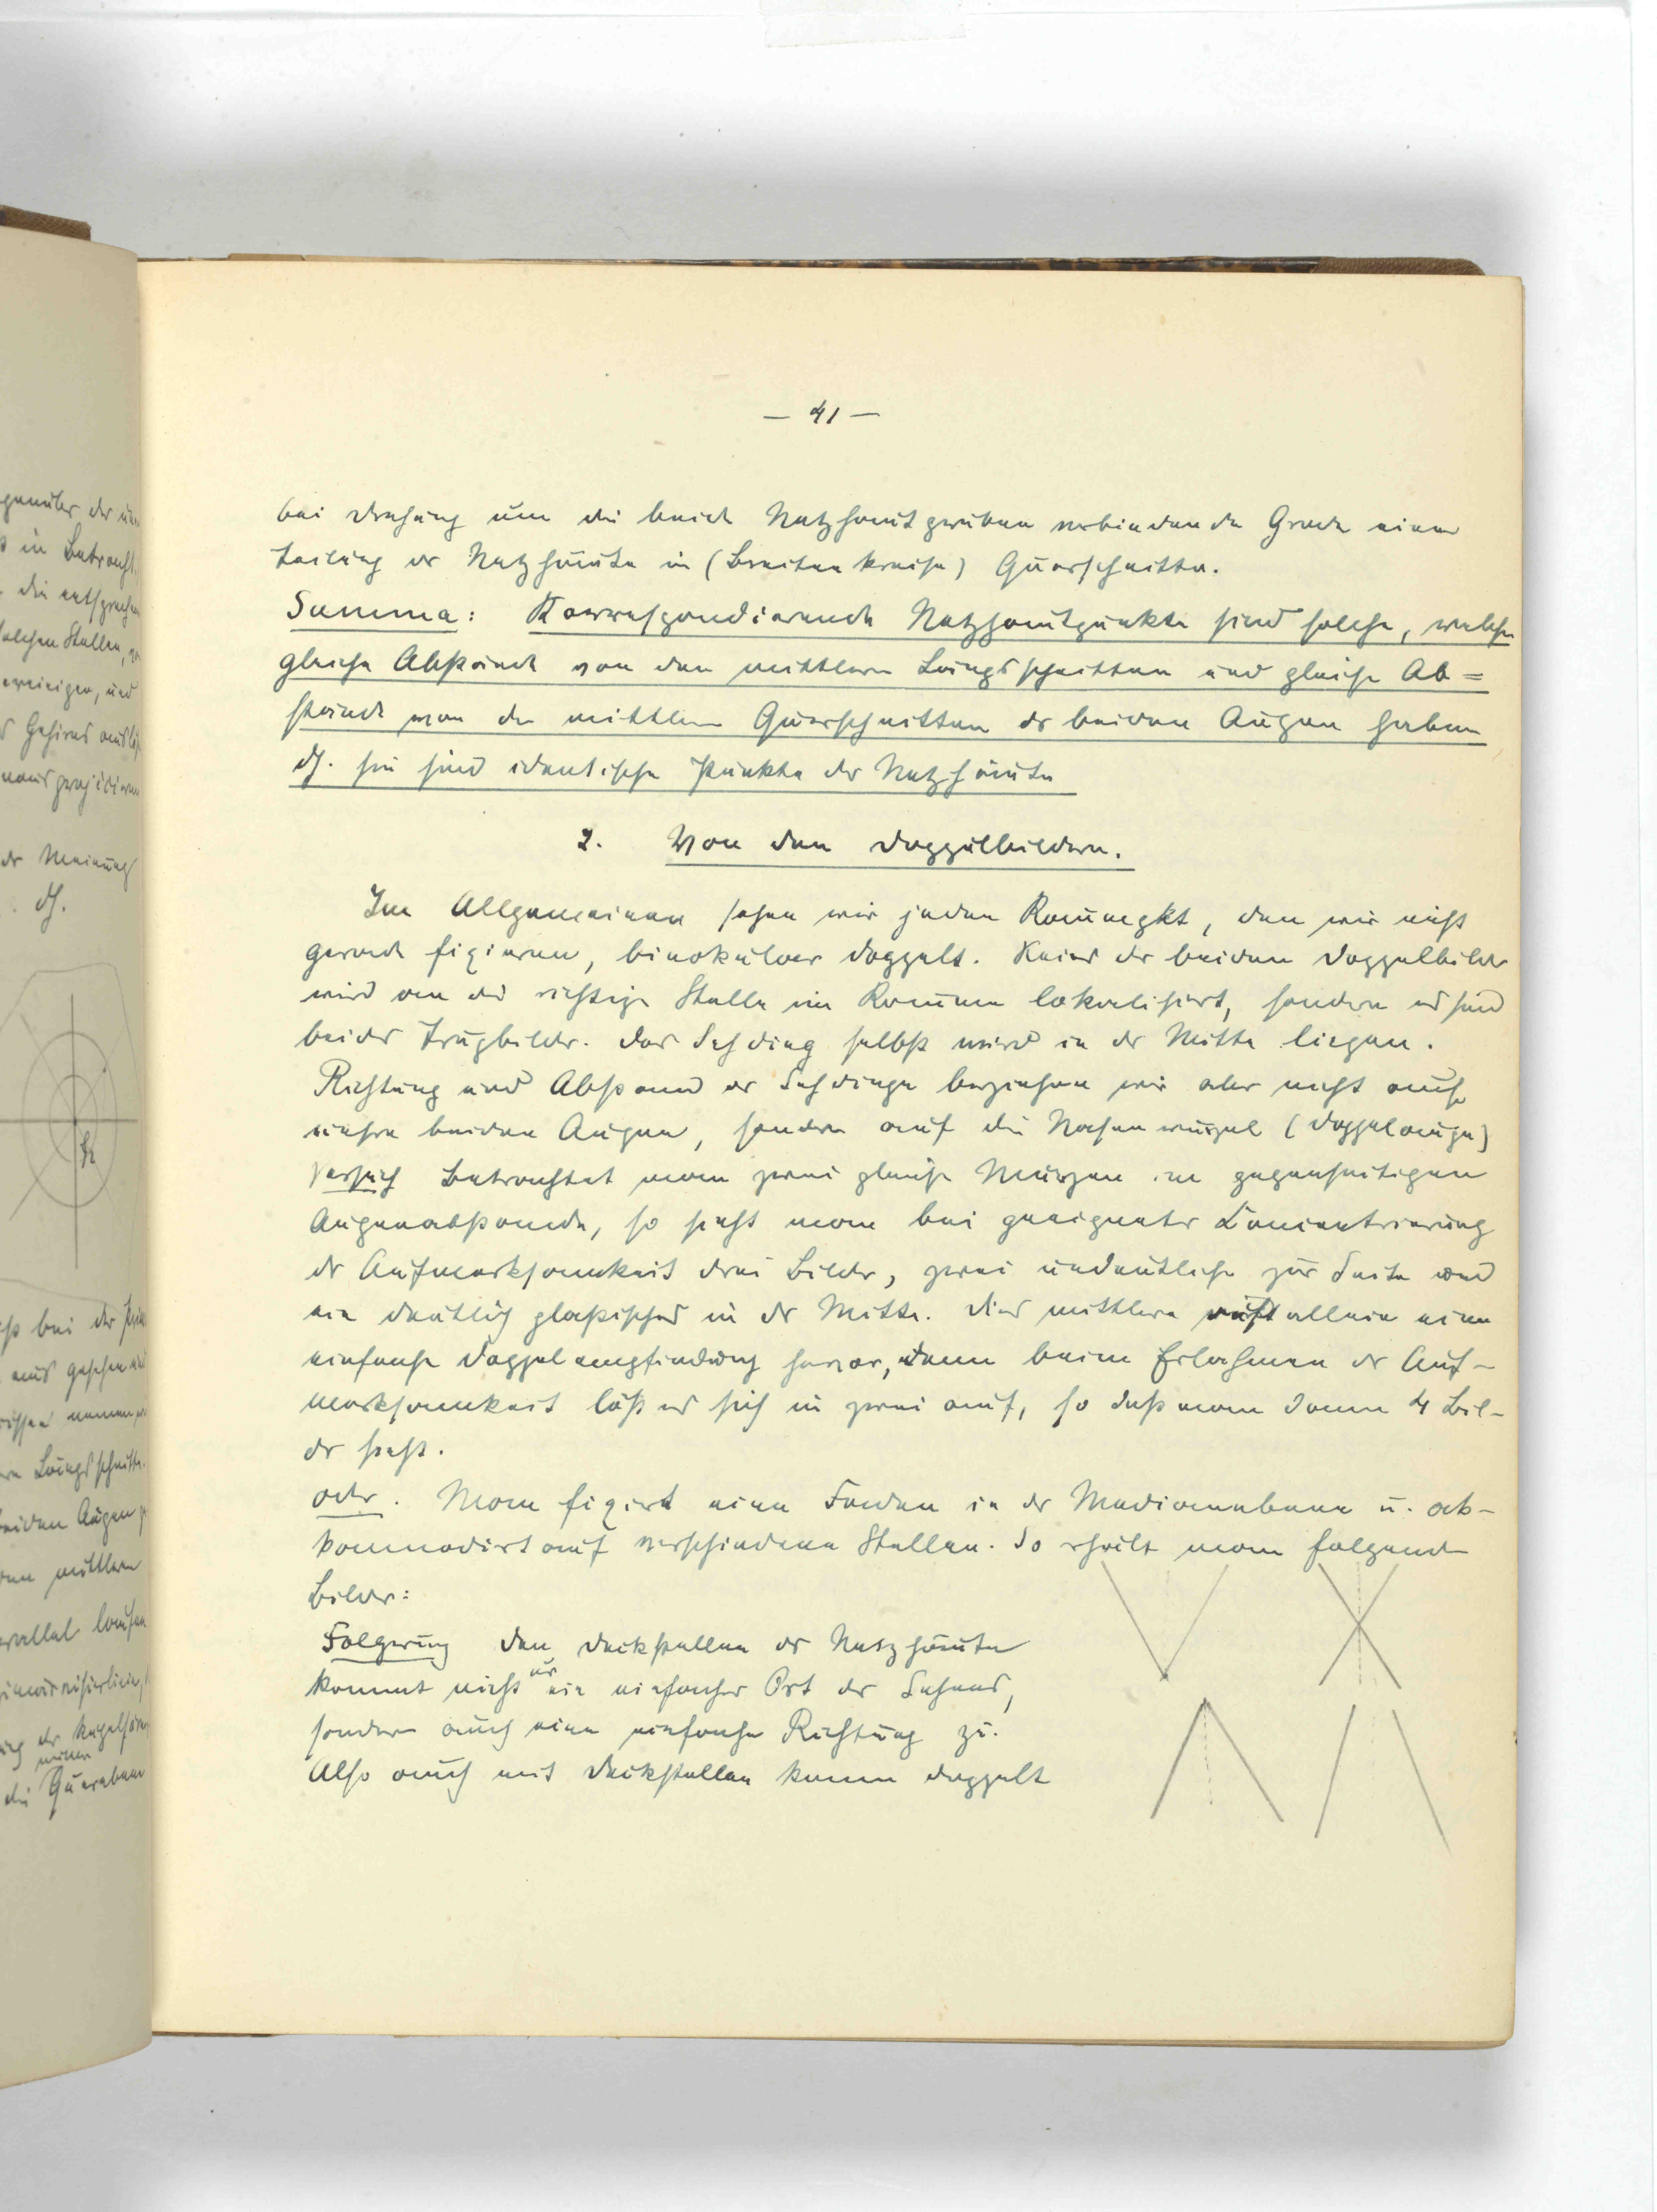 — 41 —
bei Drehung um die beide Netzhautgruben verbindende Grade eine
Teilung der Netzhäute in (Breitenkreise) Querschnitte.
Summa: Korrespondierende Netzhautpunkte sind solche, welche
gleiche Abstände von den mittleren Längsschnitten und gleiche Ab=
stände von den mittleren Querschnitten der beiden Augen haben
dh. sie sind identische Punkte der Netzhäute
2. Von den Doppelbildern.
Im Allgemeinen sehen wir jeden Raumpkt, den wir nicht
gerade fixieren, binokular doppelt. Keines der beiden Doppelbilder
wird an die richtige Stelle im Raume lokalisiert, sondern es sind
beides Trugbilder. Das Sehding selbst wird in der Mitte liegen.
Richtung und Abstand der Sehdinge beziehen wir aber nicht auf
unsre beiden Augen, sondern auf die Nasenwurzel (Doppelauge)
Versuch Betrachtet man zwei gleiche Münzen im gegenseitigen
Augenabstande, so sieht man bei geeigneter Concentrierung
der Aufmerksamkeit drei Bilder, zwei undeutliche zur Seite und
ein deutlich plastisches in der Mitte. Dies mittlere ruft allein eine
einfache Doppelempfindung hervor, denn beim Erlahmen der Auf-
merksamkeit löst es sich in zwei auf, so daß man dann 4 Bil-
der sieht.
oder. Man fixiert einen Faden in der Medianebene u. ak-
kommodirt auf verschiedene Stellen. So erhält man folgende
Bilder:
Folgerung Den Deckstellen der Netzhäute
kommt nicht nur ein einfacher Ort des Sehens,
sondern auch eine einfache Richtung zu.
Also auch mit Deckstellen kann doppelt